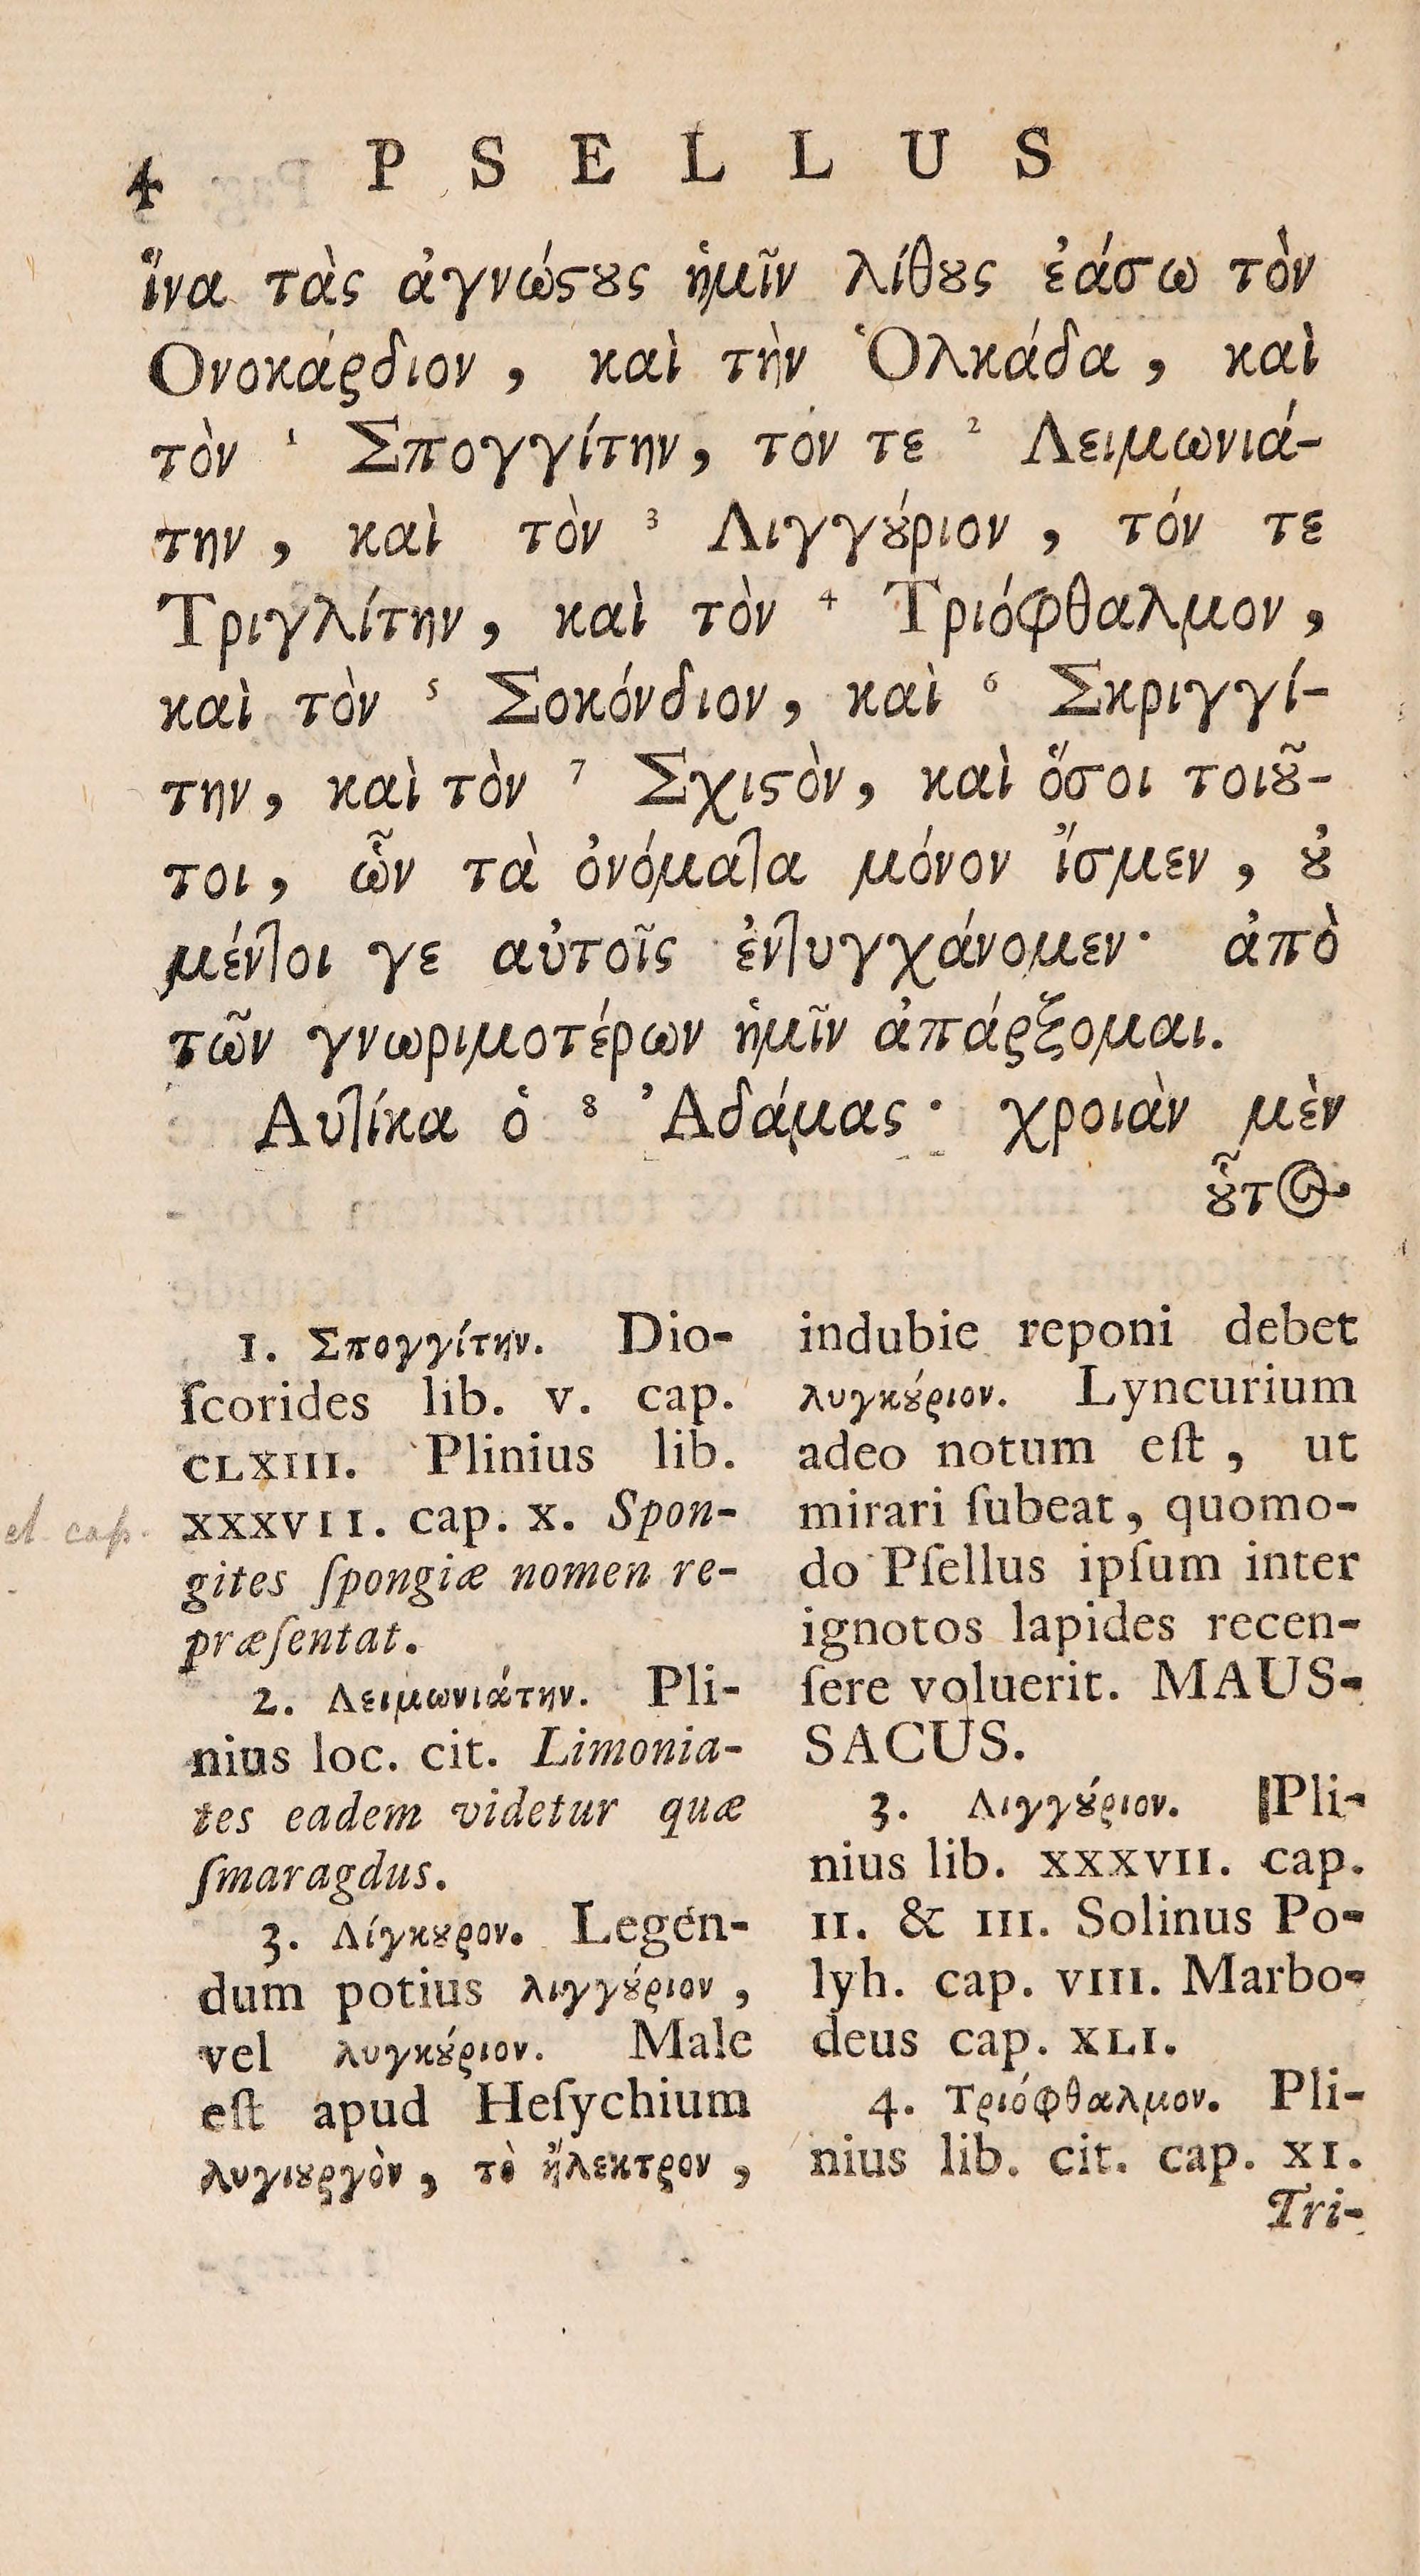 4 PSELLUS
ἵνα τὰς ἀγνώϛȣς ἡμῖν λίθȣς ἐάσω τὸν
Ονοκάρδιον, καὶ τὴν Ὁλκάδα, καὶ
τὸν 1 Σπογγίτην, τόν τε 2 Λειμωνιά-
την, καὶ τὸν 3 Λιγγȣ́ριον, τόν τε
Τριγλίτην, καὶ τὸν 4 Τριόφθαλμον,
καὶ τὸν 5 Σοκόνδιον, καὶ 6 Σκριγγί-
την, καὶ τὸν 7 Σχιϛὸν, καὶ ὅσοι τοιȣ͂-
τοι, ὧν τὰ ὀνόματα μόνον ἴσμεν, ȣ̓
μέντοι γε αὐτοῖς ἐντυγχάνομεν· ἀπὸ
τῶν γνωριμοτέρων ἡμῖν ἀπάρξομαι.
Αυτίκα ὁ 8 Ἀδάμας· χροιὰν μὲν
ȣ̓͂τος
1. Σπογγίτην. Dio-
ſcorides lib. v. cap.
CLXIII. Plinius lib.
et cap. XXXVII. cap. X. Spon-
gites ſpongiæ nomen re-
præſentat.
2. Λειμωνιάτην. Pli-
nius loc. cit. Limonia-
tes eadem videtur quæ
ſmaragdus.
3. Λίγκȣρον. Legen-
dum potius λιγγȣ́ριον,
vel λυγκȣ́ριον. Male
eſt apud Heſychium
λυγιȣργὸν, τὸ ἤλεκτρον,
indubie reponi debet
λυγκȣ́ριον. Lyncurium
adeo notum eſt, ut
mirari ſubeat, quomo-
do Pſellus ipſum inter
ignotos lapides recen-
ſere voluerit. MAUS-
SACUS.
3. Λιγγȣ́ριον. Pli-
nius lib. XXXVII. cap.
II. & III. Solinus Po-
lyh. cap. VIII. Marbo-
deus cap. XLI.
4. Τριόφθαλμον. Pli-
nius lib. cit. cap. XI.
Tri-